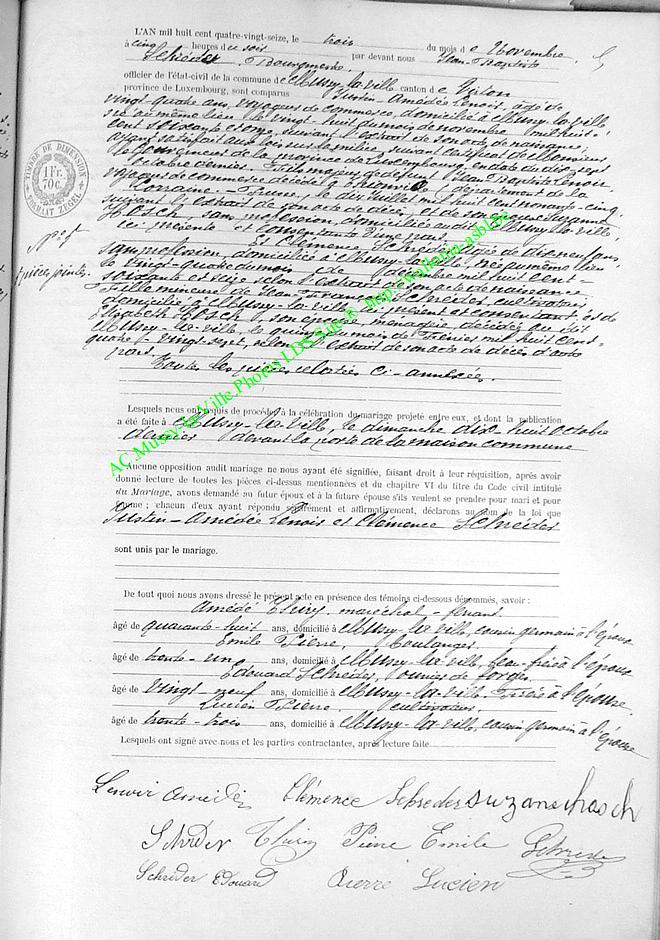 L'AN mil huit cent quatre-vingt-seize, le trois du mois de Novembre
à cinq heures du soir par devant nous Jean-Baptiste
Schréder, Bourgmestre,
officier de l'état-civil de la commune de Mussy-la-ville canton de Virton
province de Luxembourg, sont comparus Justin-Amédée Lenoir, âgé de
vingt-quatre ans, voyageur de commerce, domicilié à Mussy-la-ville,
né au même lieu le vingt-huit du mois de novembre mil huit-
cent soixante et onze, suivant l'extrait de son acte de naissance,
ayant satisfait aux lois sur la milice, suivant certificat de Monsieur
le Gouverneur de la province de Luxembourg, en date du dix-sept
octobre dernier. Fils majeur de défunt Jean-Baptiste Lenoir,
voyageur de commerce décédé à (département de la
Lorraine - le dix juillet mil huit cent nonante-cinq,
suivant l'extrait de son acte de décès, et de Suzanne
Hosch, sans profession, domiciliée audit Mussy-la-ville,
ici présente et consentante d'une part
Et Clémence Schréder âgée de dix-neuf ans,
sans profession, domiciliée à Mussy-la-ville, née au même lieu
le vingt-quatre du mois de mil huit cent-
soixante et seize selon l'extrait de son acte de naissance
Fille mineure de Jean-François Schréder, cultivateur,
domicilié à Mussy-la-ville ici présent et consentant, et de
Elisabeth Hosch, son épouse, ménagère, décédée au dit
Mussy-la-ville, le quinze du mois de Février mil huit cent-
quatre-vingt-sept, selon l'extrait de son acte de décès d'autre
part.
Toutes les pièces relatées ci-annexées.
TIMBRE DE DIMENSION
1 Fr.
70c.
FORMAAT ZEGEL
pièces jointes.
Lesquels nous ont requis de procéder à la célébration du mariage projeté entre eux, et dont la publication
a été faite à Mussy-la-ville, le dimanche dix-huit octobre
dernier devant la porte de la maison commune
Aucune opposition audit mariage ne nous ayant été signifiée, faisant droit à leur réquisition, après avoir
donné lecture de toutes les pièces ci-dessus mentionnées et du chapitre VI du titre du Code civil intitulé
du Mariage, avons demandé au futur époux et à la future épouse s'ils veulent se prendre pour mari et pour
femme ; chacun d'eux ayant répondu séparément et affirmativement, déclarons au nom de la loi que
Justin-Amédée Lenoir et Clémence Schréder
sont unis par le mariage.
De tout quoi nous avons dressé le présent acte en présence des témoins ci-dessous dénommés, savoir :
Amédé Thiry, maréchal-ferrant
âgé de quarante-huit ans, domicilié à Mussy-la-ville, cousin germain à l'époux
Emile Pierre, Boulanger
âgé de trente-un ans, domicilié à Mussy-la-ville, beau-frère à l'époux
Edouard Schréder, ouvrier de forges,
âgé de vingt-neuf ans, domicilié à Mussy-la-ville, Frère à l'épouse
Lucien Pierre, cultivateur,
âgé de trente-trois ans, domicilié à Mussy-la-ville, cousin germain à l'épouse
Lesquels ont signé avec nous et les parties contractantes, après lecture faite
Lenoir Amédée Clémence Schreder Suzane hosch
Schréder Thiry Pierre Emile Schreder
Schreder Edouard Pierre Lucien
AC Mussy-la-Ville Photos LDS Site @ http://wallonia-asbl.be